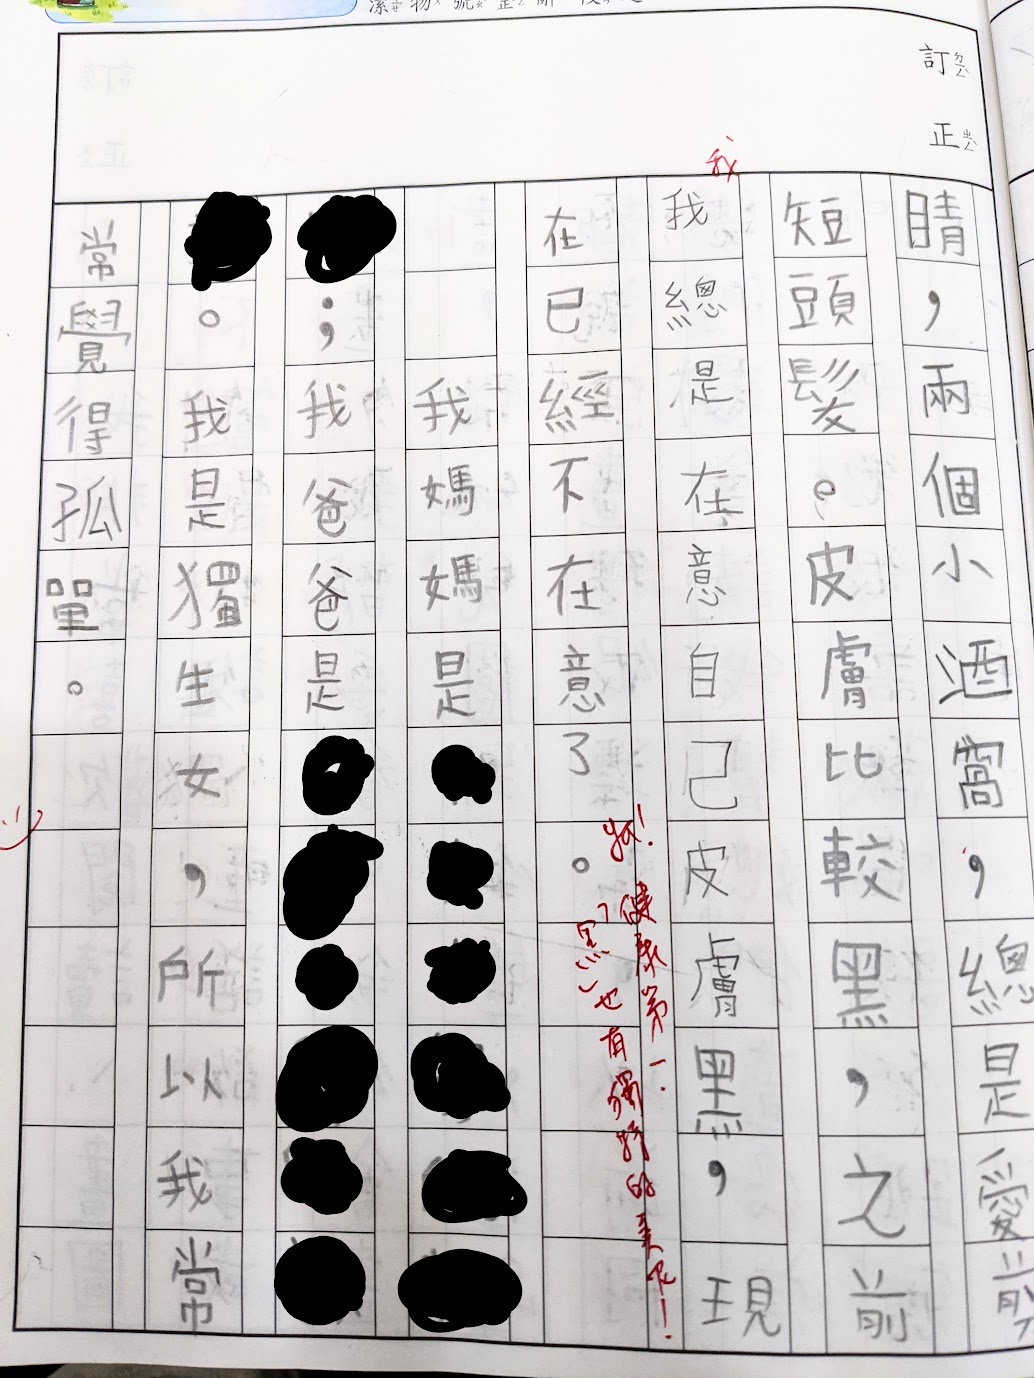 訂正
睛，兩個小酒窩，總是愛剪
短頭髮。皮膚比較黑，之前
我
我總是在意自己皮膚黑，現
在已經不在意了。
健康第一！
黑也有獨特的美
我媽媽是
；我爸爸是
。我是獨生女，所以我常
常覺得孤單。